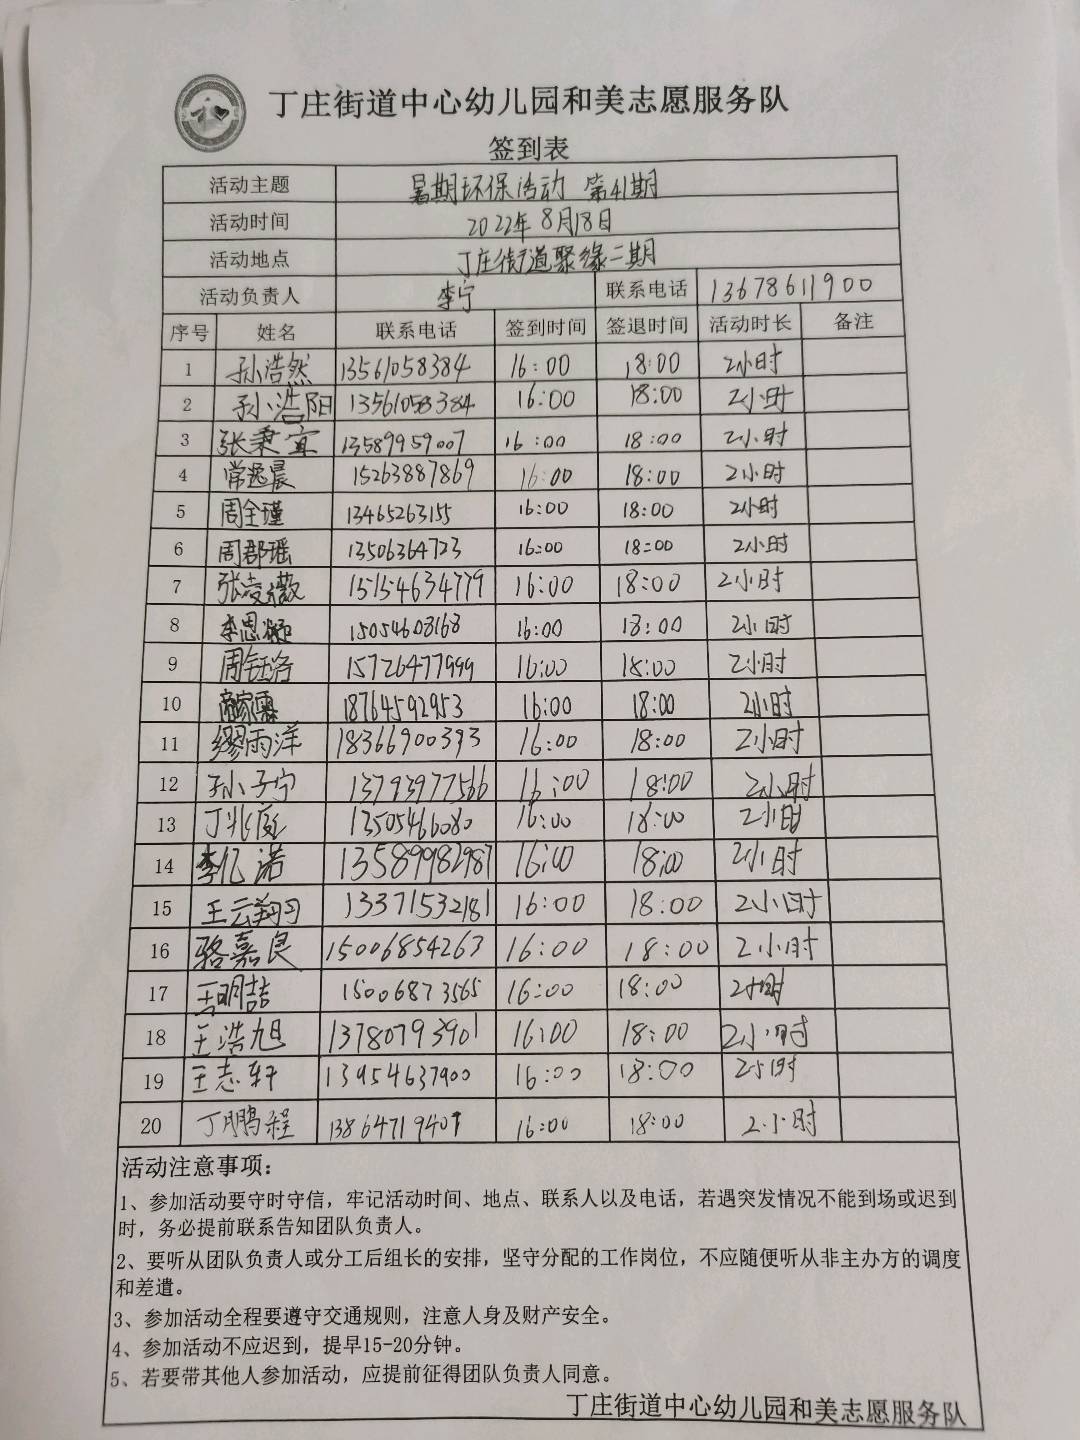 丁庄街道中心幼儿园和美志愿服务队
签到表
活动主题 暑期环保活动 第41期
活动时间 2022年8月18日
活动地点 丁庄街道聚缘二期
活动负责人 李宁 联系电话 13678611900
序号 姓名 联系电话 签到时间 签退时间 活动时长 备注
1 孙浩然 13561058384 16:00 18:00 2小时
2 孙浩阳 13561058384 16:00 18:00 2小时
3 张秉宜 13589959007 16:00 18:00 2小时
4 常逸晨 15263887869 16:00 18:00 2小时
5 周全瑾 13465263155 16:00 18:00 2小时
6 周郡瑶 13506364723 16:00 18:00 2小时
7 张凌薇 15154634779 16:00 18:00 2小时
8 李思凝 15054608168 16:00 18:00 2小时
9 周钰洛 15726477999 16:00 18:00 2小时
10 18764592953 16:00 18:00 2小时
11 缪雨洋 18366900393 16:00 18:00 2小时
12 孙子宁 13793977566 16:00 18:00 2小时
13 丁兆庭 13505466080 16:00 18:00 2小时
14 李亿诺 13589982987 16:00 18:00 2小时
15 王云翔 13371532181 16:00 18:00 2小时
16 骆嘉良 15006854263 16:00 18:00 2小时
17 王明喆 15006873565 16:00 18:00 2小时
18 王浩旭 13780793901 16:00 18:00 2小时
19 王志轩 13954637900 16:00 18:00 2小时
20 丁鹏程 13864719401 16:00 18:00 2小时
活动注意事项：
1、参加活动要守时守信，牢记活动时间、地点、联系人以及电话，若遇突发情况不能到场或迟到
时，务必提前联系告知团队负责人。
2、要听从团队负责人或分工后组长的安排，坚守分配的工作岗位，不应随便听从非主办方的调度
和差遣。
3、参加活动全程要遵守交通规则，注意人身及财产安全。
4、参加活动不应迟到，提早15-20分钟。
5、若要带其他人参加活动，应提前征得团队负责人同意。
丁庄街道中心幼儿园和美志愿服务队